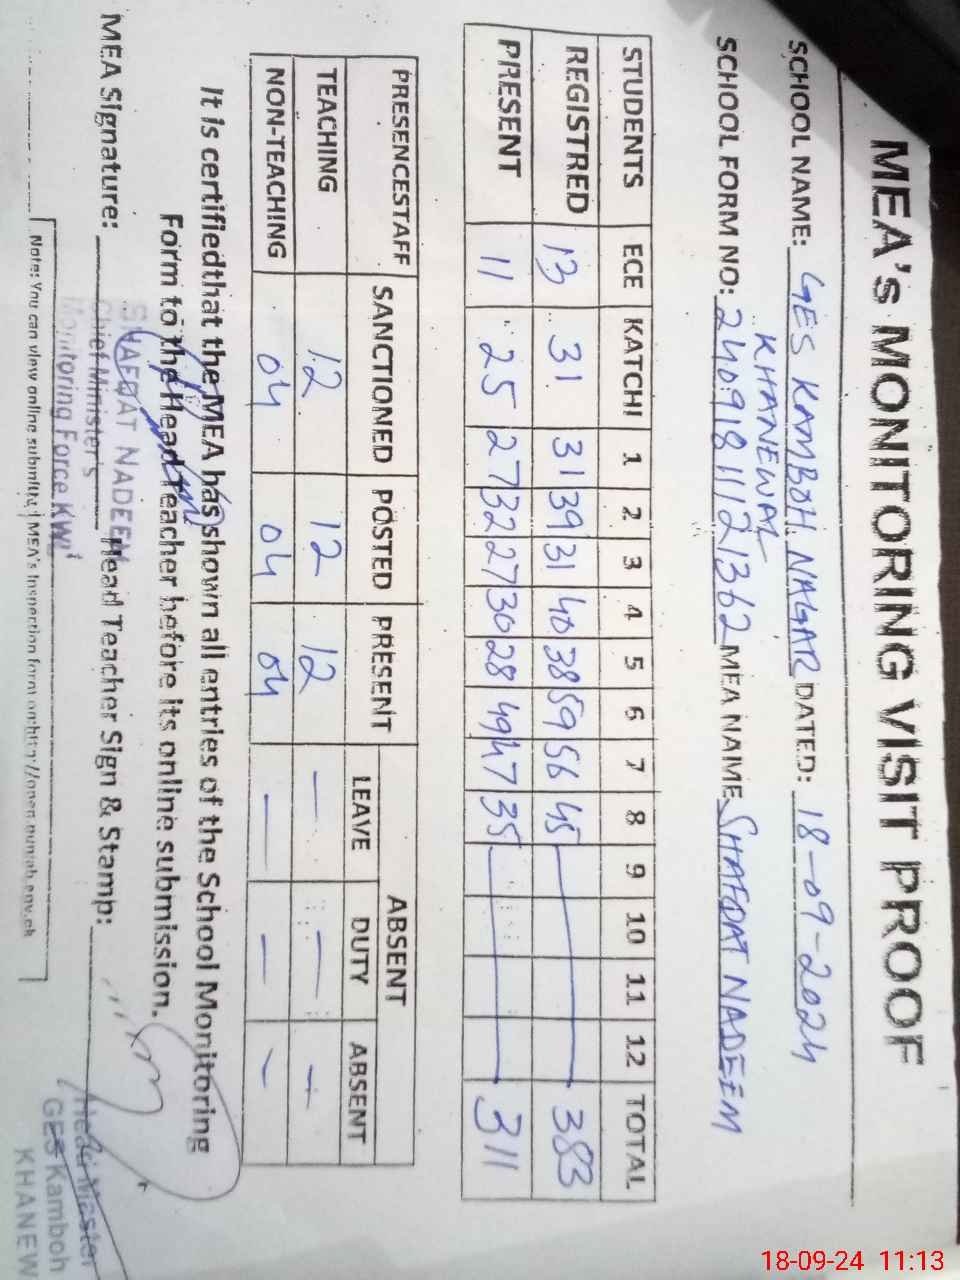 MEA's MONITORING VISIT PROOF
SCHOOL NAME: GES KAMBOH NAGAR DATED: 18-09-2024
KHANEWAL
SCHOOL FORM NO: 24091811121362 MEA NAME SHAFQAT NADEEM
STUDENTS ECE KATCHI 1 2 3 4 5 6 7 8 9 10 11 12 TOTAL
REGISTRED 13 31 31 39 31 40 38 59 56 45 383
PRESENT 11 25 27 32 27 30 28 49 47 35 311
PRESENCESTAFF SANCTIONED POSTED PRESENT ABSENT
LEAVE DUTY ABSENT
TEACHING 12 12 12 — — —
NON-TEACHING 04 04 04 — — —
It is certifiedthat the MEA has shown all entries of the School Monitoring
Form to the Head Teacher before its online submission.
MEA Signature: Head Teacher Sign & Stamp:
SHAFQAT NADEEM
Chief Minister's
Monitoring Force KWL
Head Master
GES Kamboh
KHANEW
Note: You can view online submitted MEA's Inspection form on
18-09-24 11:13